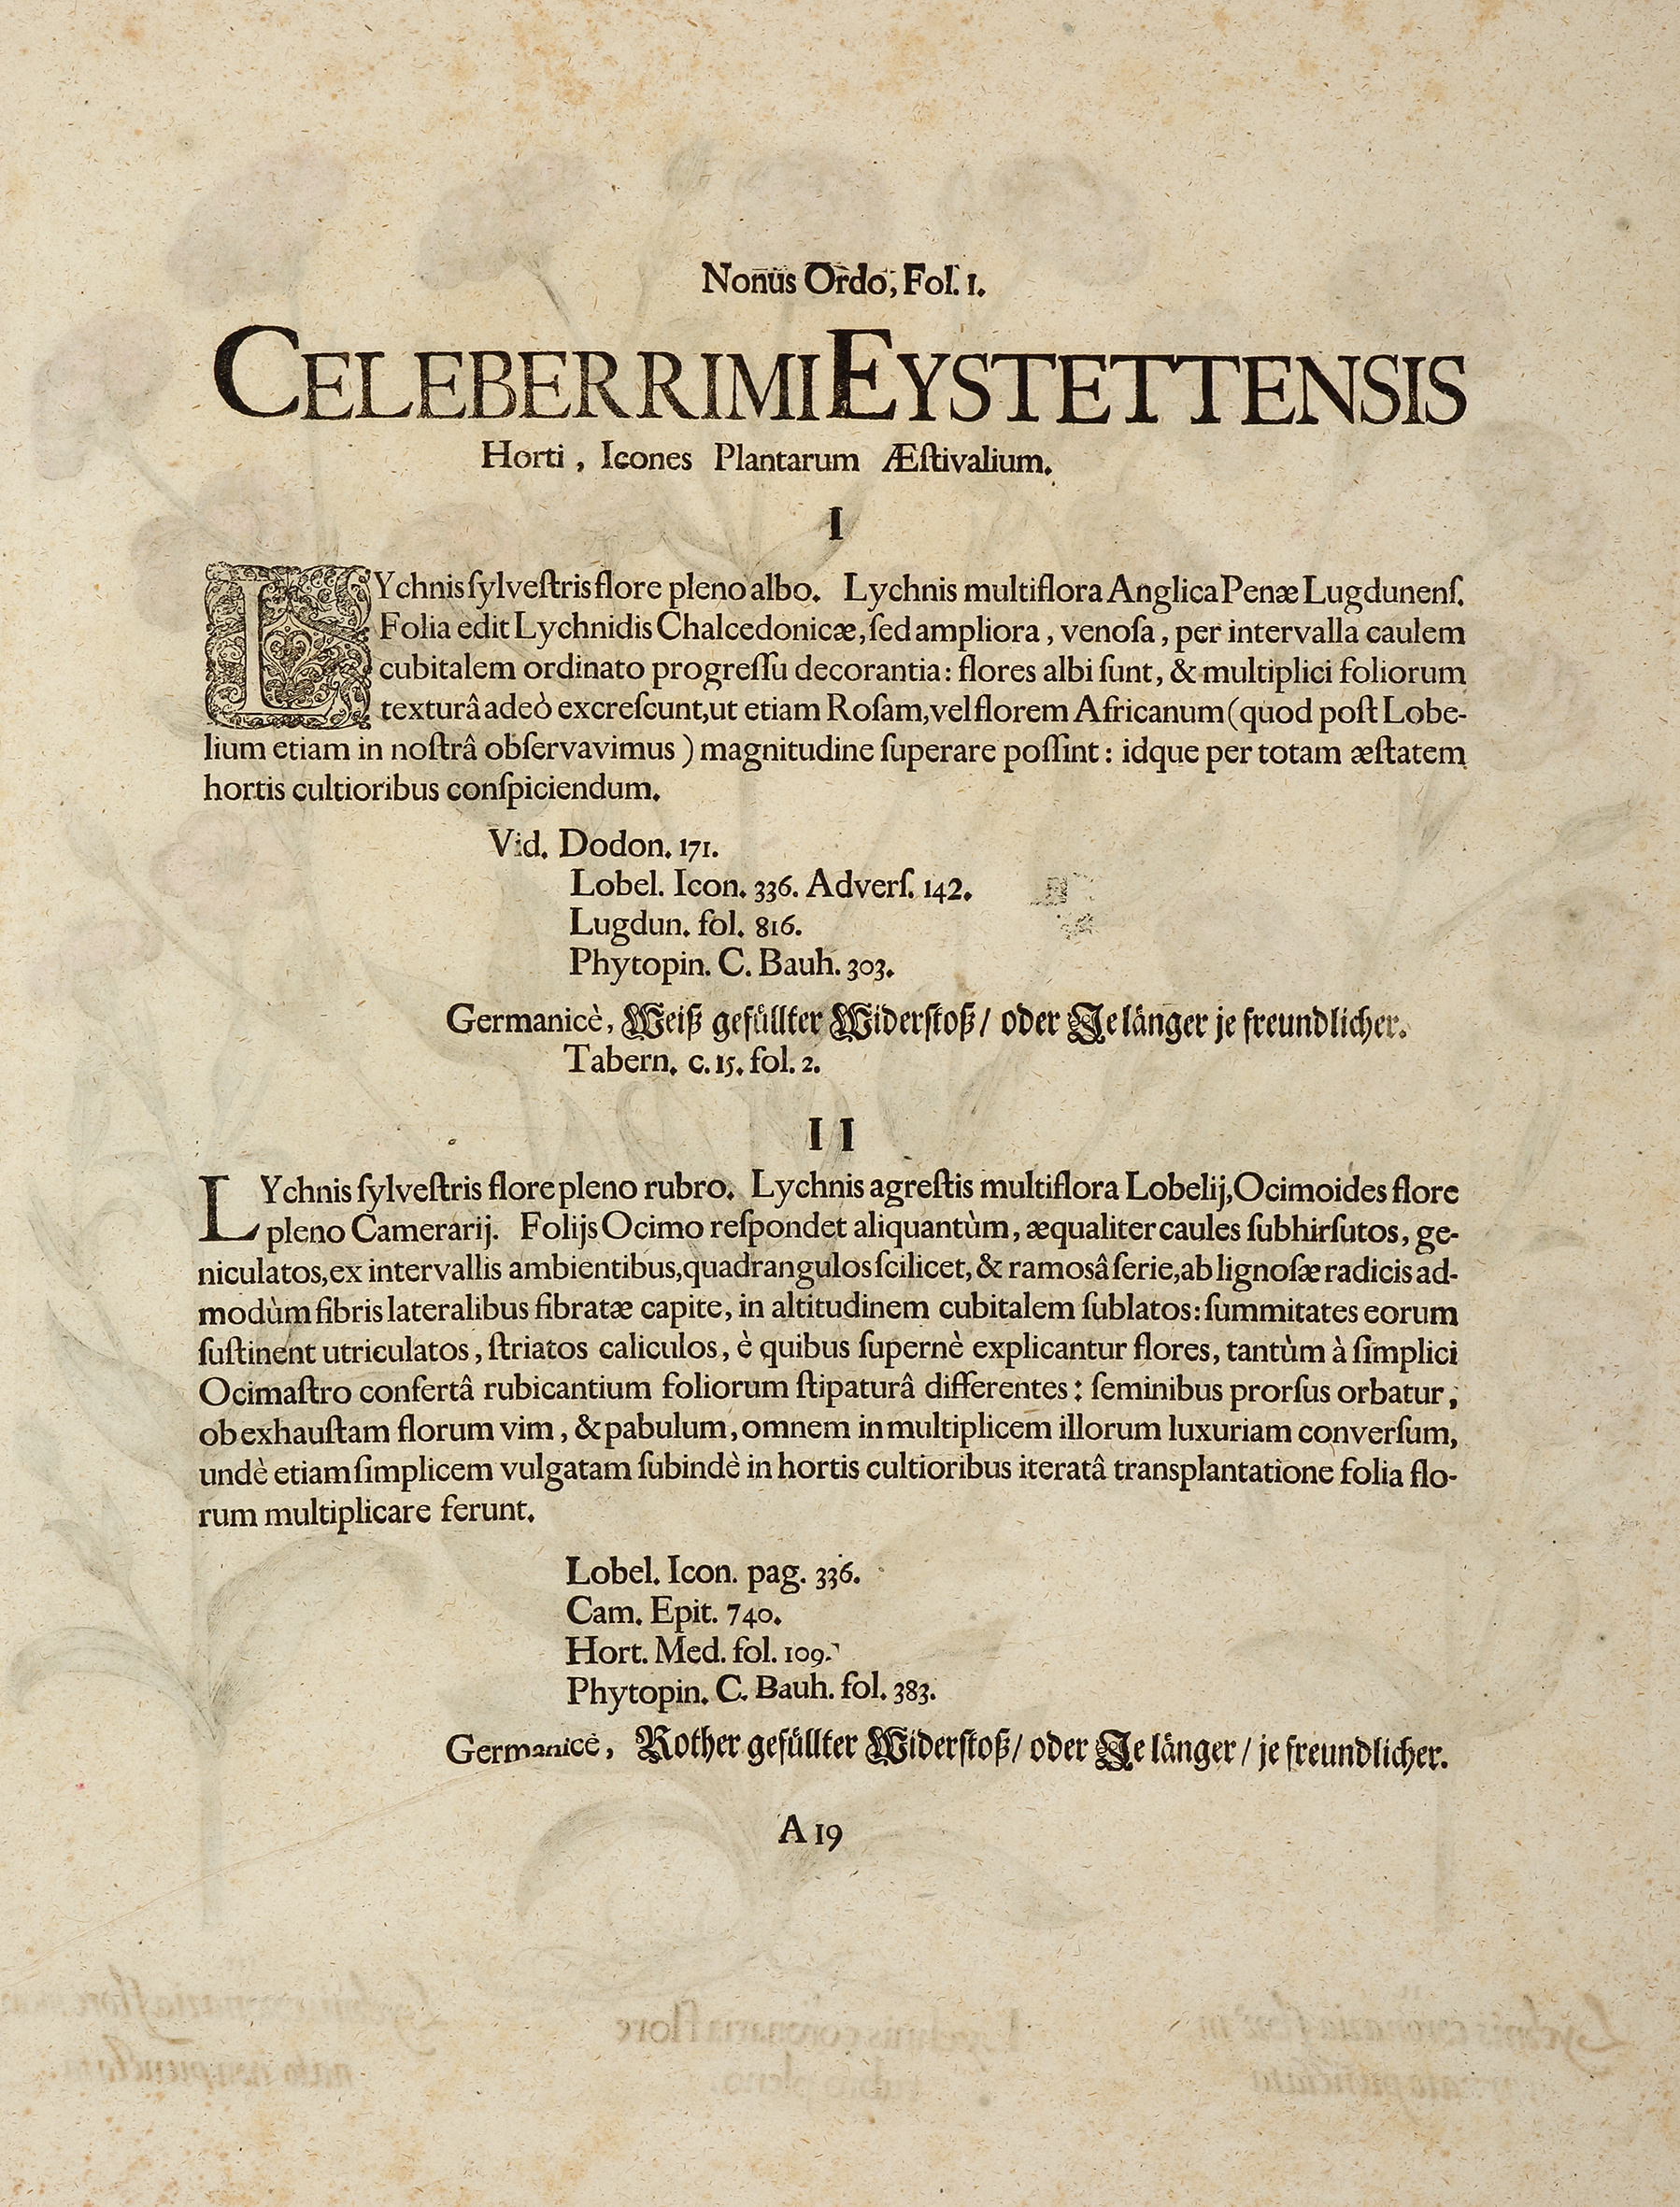 Nonus Ordo, Fol. 1.
CELEBERRIMI EYSTETTENSIS
Horti, Icones Plantarum Æſtivalium.
I
LYchnis ſylveſtris flore pleno albo. Lychnis multiflora Anglica Penæ Lugdunenſ.
Folia edit Lychnidis Chalcedonicæ, ſed ampliora, venoſa, per intervalla caulem
cubitalem ordinato progreſſu decorantia: flores albi ſunt, & multiplici foliorum
texturâ adeò excreſcunt, ut etiam Roſam, vel florem Africanum (quod poſt Lobe-
lium etiam in noſtrâ obſervavimus) magnitudine ſuperare poſſint: idque per totam æſtatem
hortis cultioribus conſpiciendum.
Vid. Dodon. 171.
Lobel. Icon. 336. Adverſ. 142.
Lugdun. fol. 816.
Phytopin. C. Bauh. 303.
Germanicè, Weiß gefüllter Widerſtoß / oder Je länger je freundlicher.
Tabern. c. 15. fol. 2.
II
LYchnis ſylveſtris flore pleno rubro. Lychnis agreſtis multiflora Lobelij, Ocimoides flore
pleno Camerarij. Folijs Ocimo reſpondet aliquantùm, æqualiter caules ſubhirſutos, ge-
niculatos, ex intervallis ambientibus, quadrangulos ſcilicet, & ramosâ ſerie, ab lignoſæ radicis ad-
modùm fibris lateralibus fibratæ capite, in altitudinem cubitalem ſublatos: ſummitates eorum
ſuſtinent utriculatos, ſtriatos caliculos, è quibus ſupernè explicantur flores, tantùm à ſimplici
Ocimaſtro confertâ rubicantium foliorum ſtipaturâ differentes: ſeminibus prorſus orbatur,
ob exhauſtam florum vim, & pabulum, omnem in multiplicem illorum luxuriam converſum,
undè etiam ſimplicem vulgatam ſubindè in hortis cultioribus iteratâ transplantatione folia flo-
rum multiplicare ferunt.
Lobel. Icon. pag. 336.
Cam. Epit. 740.
Hort. Med. fol. 109.
Phytopin. C. Bauh. fol. 383.
Germanicè, Rother gefüllter Widerſtoß / oder Je länger / je freundlicher.
A 19